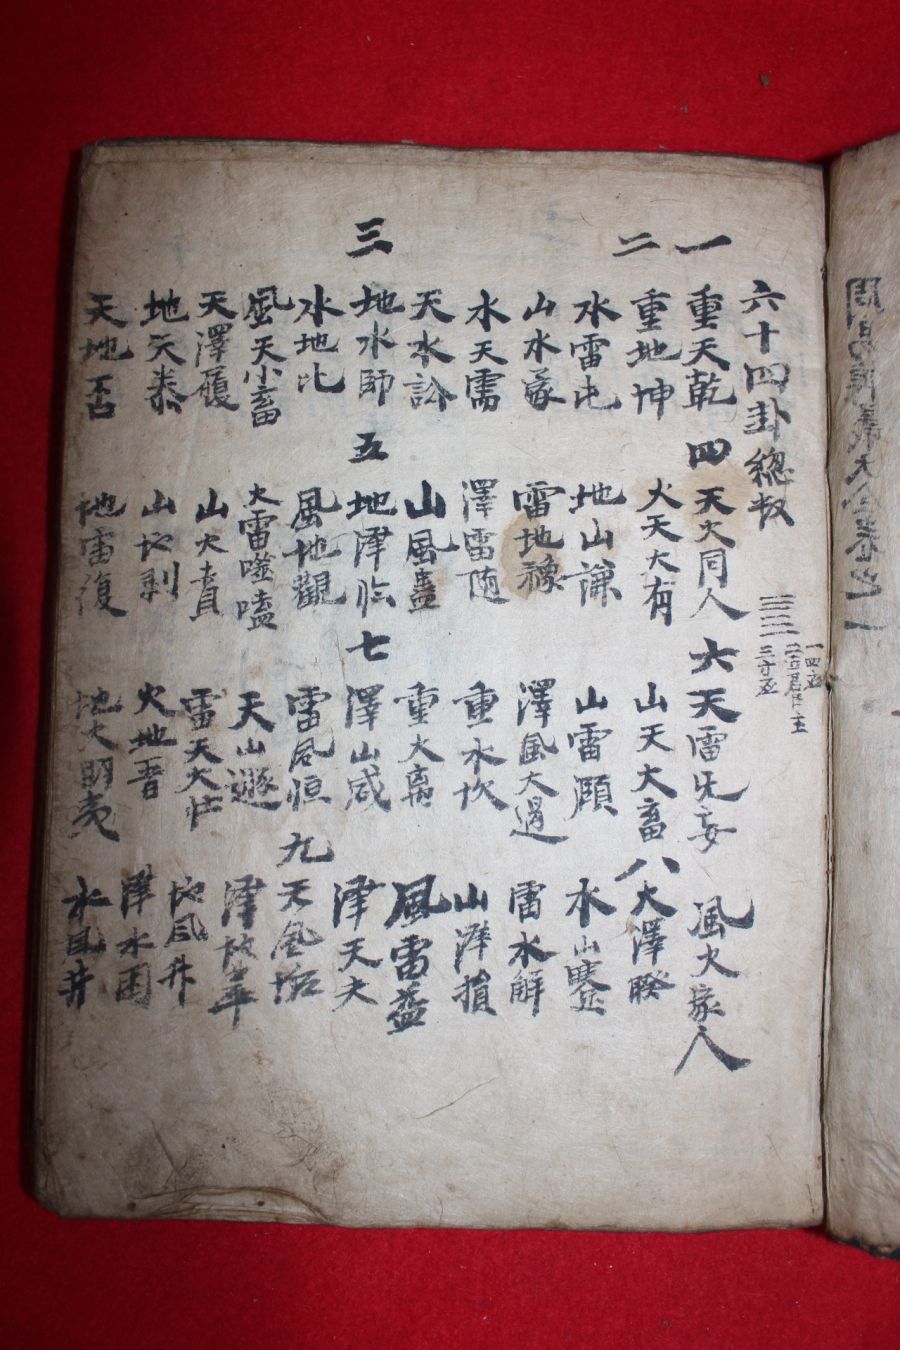 周易傳義大全卷之一
六十四卦總
一 重天乾
二 重地坤
水雷屯
山水蒙
水天需
天水訟
三 地水師
水地比
風天小畜
天澤履
地天泰
天地否
四 天火同人
火天大有
地山謙
雷地豫
澤雷随
山風蠱
五 地澤临
風地觀
火雷噬嗑
山火賁
山地剥
地雷復
六 天雷无妄
山天大畜
山雷頤
澤風大過
重水坎
重火离
七 澤山咸
雷風恒
天山遯
雷天大壯
火地晋
地火明夷
風火家人
八 火澤睽
水山蹇
雷水解
山澤損
風雷益
澤天夬
九 天風姤
澤地萃
地風升
澤水困
水風井